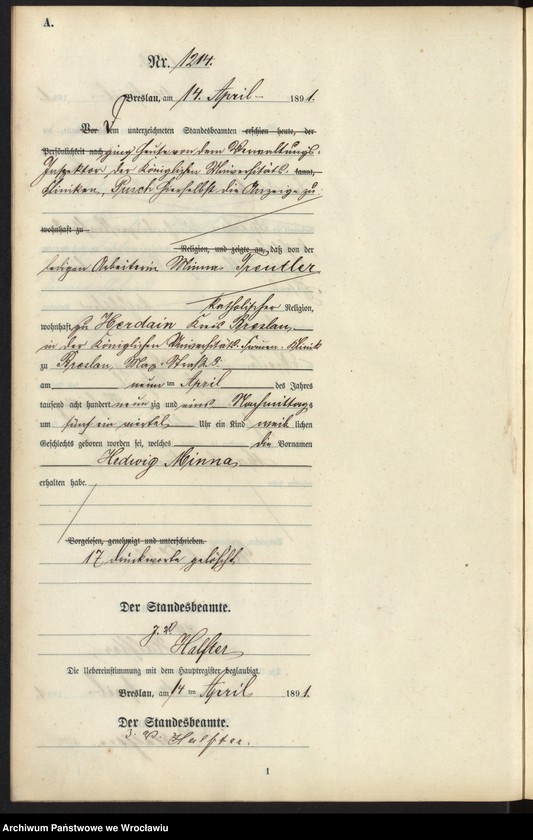 A.
Nr. 1214.
Breslau, am 14. April 1891.
Vor dem unterzeichneten Standesbeamten erschien heute, der
Persönlichkeit nach ging heute von dem Verwaltungs-
Inspektor der Königlichen Universitäts- kannt,
Kliniken, hierselbst die Anzeige zu
wohnhaft zu
Religion, und zeigte an, daß von der
ledigen Arbeiterin Minna Treutler
katholischer Religion,
wohnhaft zu Herdain Kreis Breslau,
in der Königlichen Universitäts-Frauen-Klinik
zu Breslau, Max-Straße
am neunten April des Jahres
tausend acht hundert neunzig und eins Nachmittags
um fünf ein viertel Uhr ein Kind weiblichen
Geschlechts geboren worden sei, welches die Vornamen
Hedwig Minna
erhalten habe.
Vorgelesen, genehmigt und unterschrieben.
17 Druckworte gelöscht.
Der Standesbeamte.
J. V.
Halfter
Die Uebereinstimmung mit dem Hauptregister beglaubigt.
Breslau, am 14 ten April 1891.
Der Standesbeamte.
J. V. Halfter.
1
Archiwum Państwowe we Wrocławiu